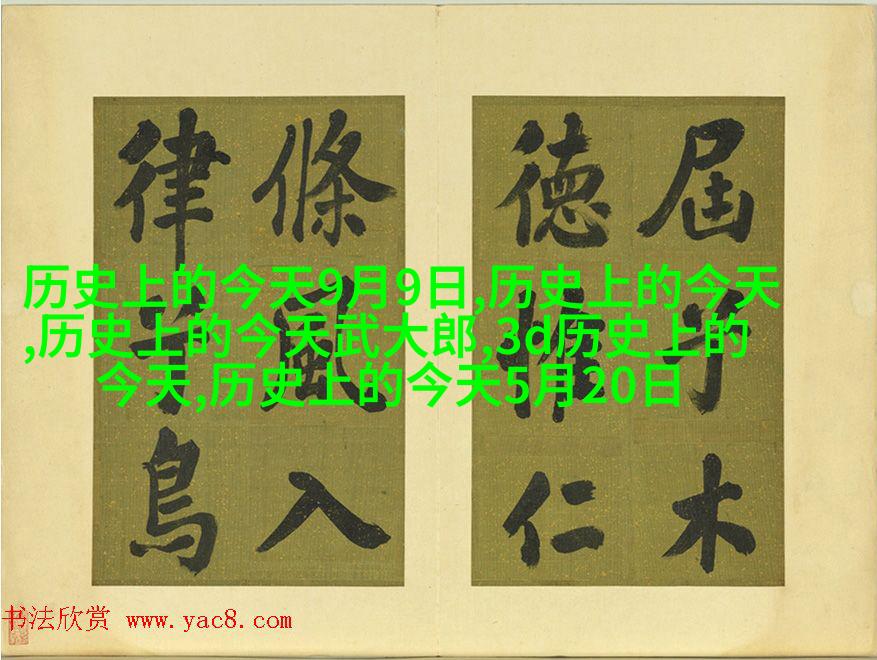 屆于木
德惟仁
條風入
律鳥
历史上的今天9月9日,历史上的今天
,历史上的今天武大郎,3d历史上的
今天,历史上的今天5月20日
书法欣赏 www.yac8.com